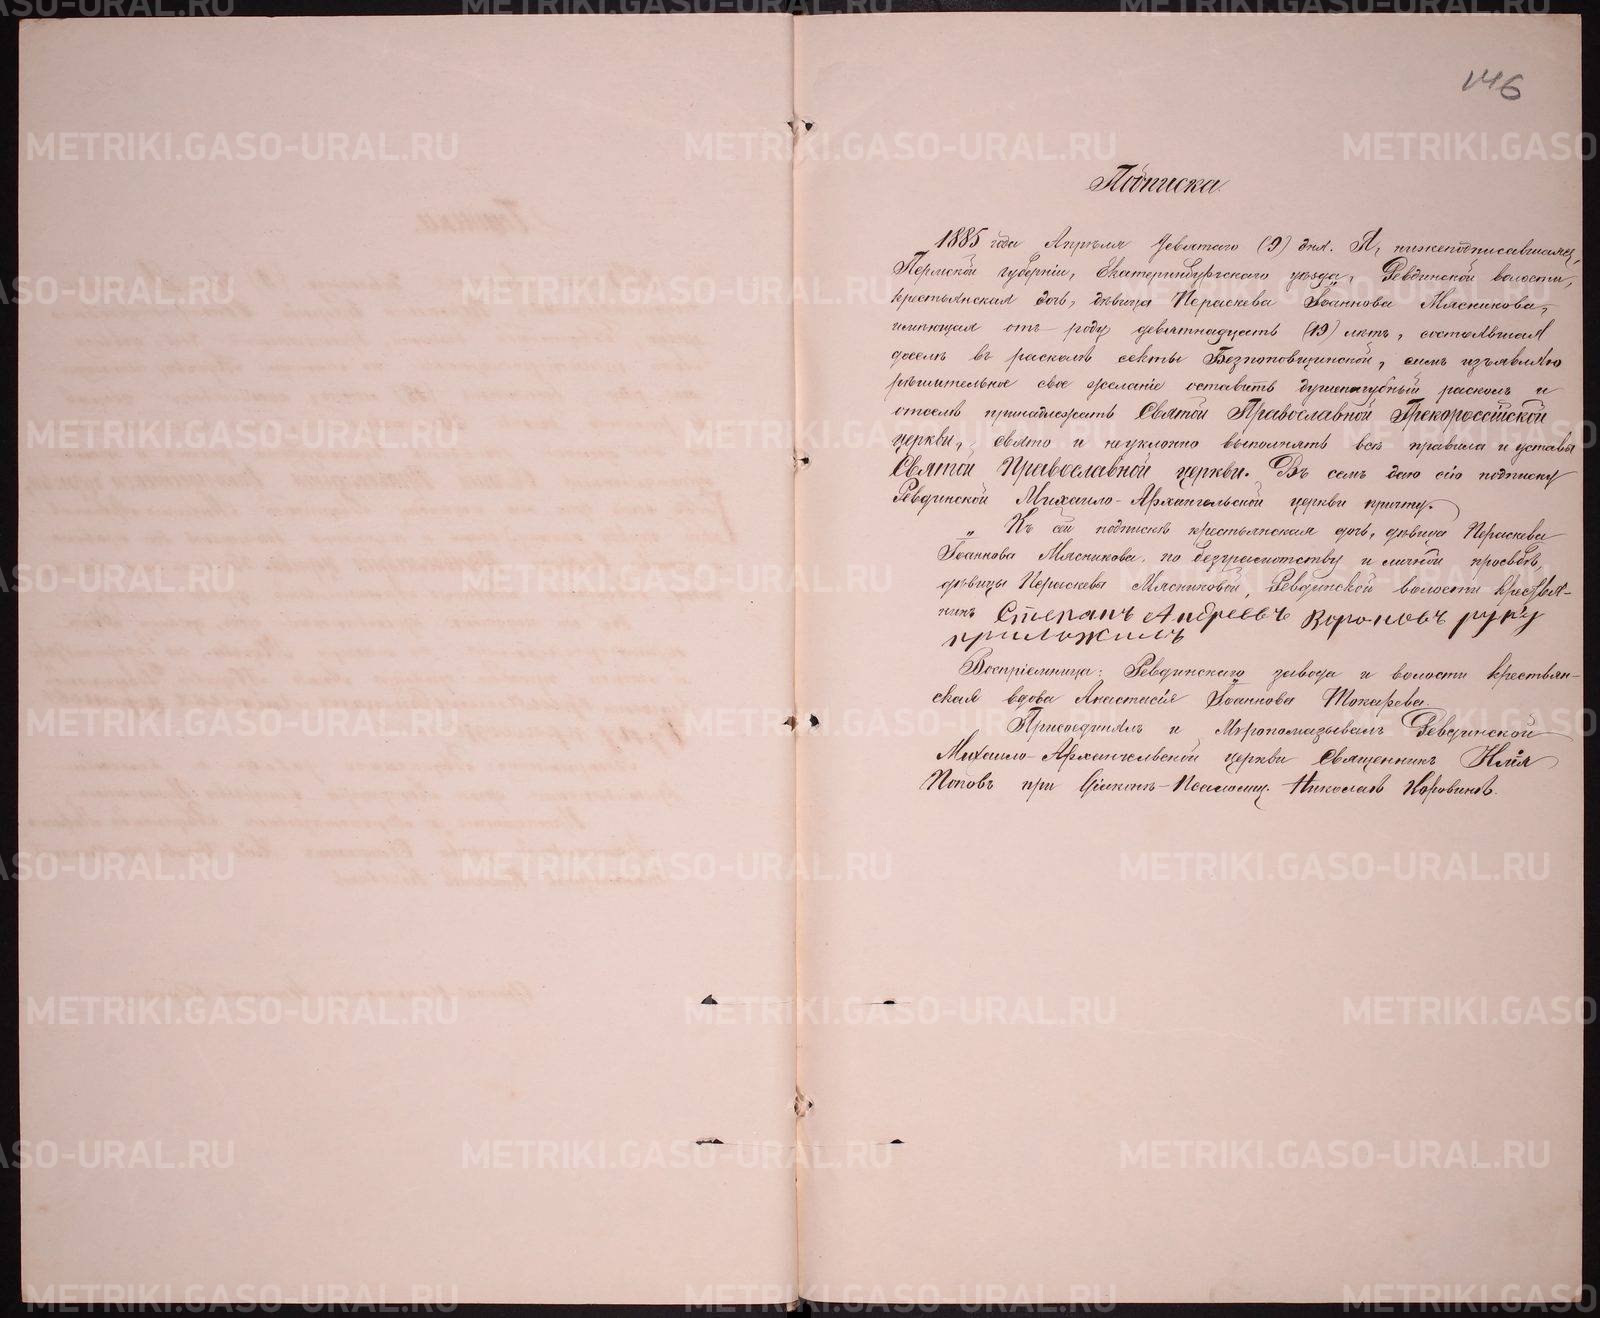 146
Подписка.
1885 года Апрѣля девятаго (9) дня. Я, нижеподписавшаяся,
Пермской губерніи, Екатеринбургскаго уѣзда, Ревдинской волости,
крестьянская дочь, дѣвица Параскева Іоаннова Мясникова,
имѣющая отъ роду девятнадцать (19) лѣтъ, состоявшая
доселѣ въ расколѣ секты Безпоповщинской, симъ изъявляю
рѣшительное свое желаніе оставить душепагубный расколъ и
отселѣ принадлежать Святой Православной Грекороссійской
церкви, свято и неуклонно выполнять всѣ правила и уставы
Святой Православной церкви. Въ семъ даю сію подписку
Ревдинской Михаило-Архангельской церкви причту.
„ Къ сей подпискѣ крестьянская дочь, дѣвица Параскева
Іоаннова Мясникова, по безграмотству и личной просьбѣ,
дѣвицы Параскевы Мясниковой, Ревдинской волости крестья-
нинъ Степанъ Андреевъ Вороновъ руку
приложилъ
Воспріемница: Ревдинскаго завода и волости крестьян-
ская вдова Анастасія Іоаннова Токарева.
Присоединялъ и Мѵропомазывалъ Ревдинской
Михаило-Архангельской церкви Священникъ Илія
Поповъ при Діаконѣ-Псаломщ. Николаѣ Коровинѣ.
METRIKI.GASO-URAL.RU